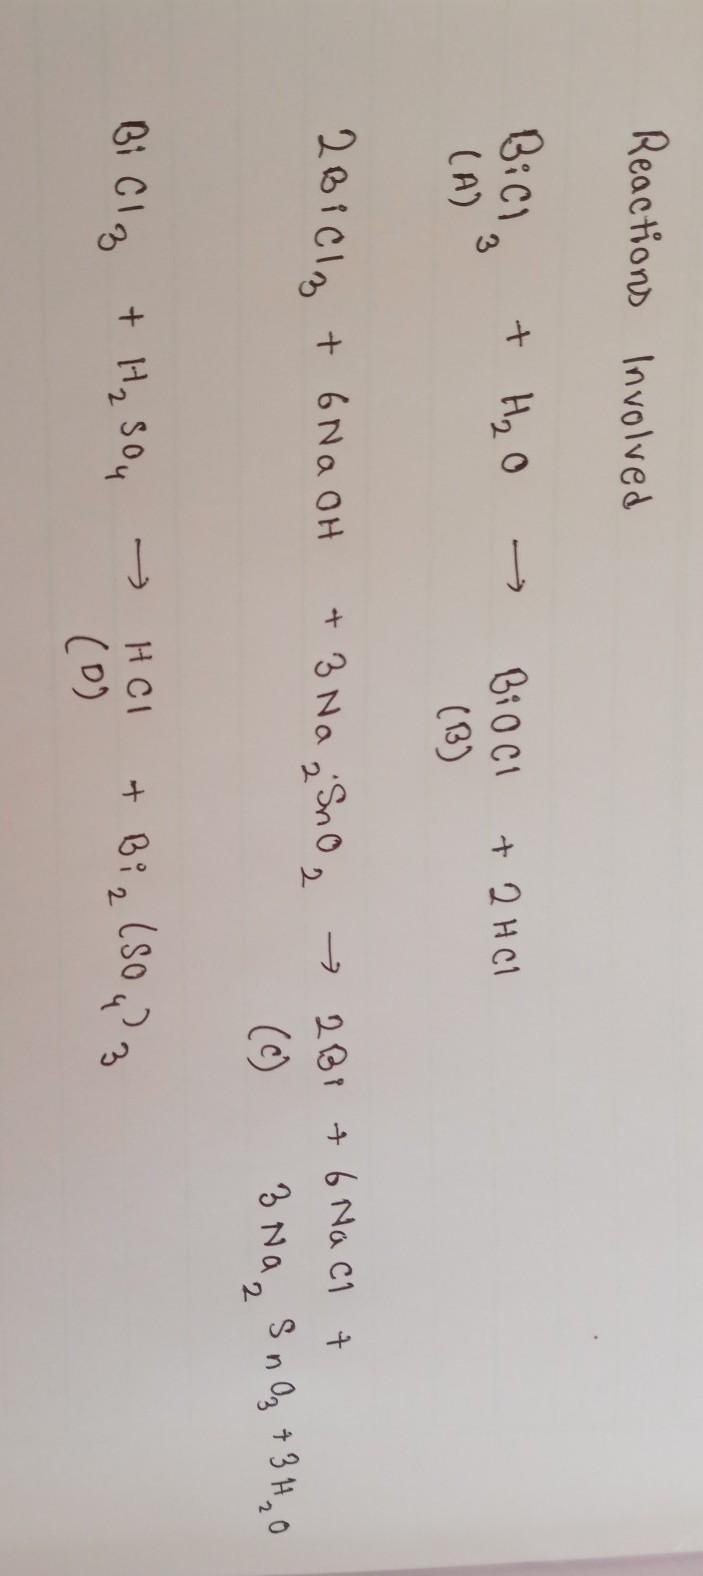 Reactions Involved
BiCl3 + H2O → BiOCl + 2HCl
(A) (B)
2BiCl3 + 6NaOH + 3Na2SnO2 → 2Bi + 6NaCl +
(C) 3Na2SnO3 + 3H2O
BiCl3 + H2SO4 → HCl + Bi2(SO4)3
(D)